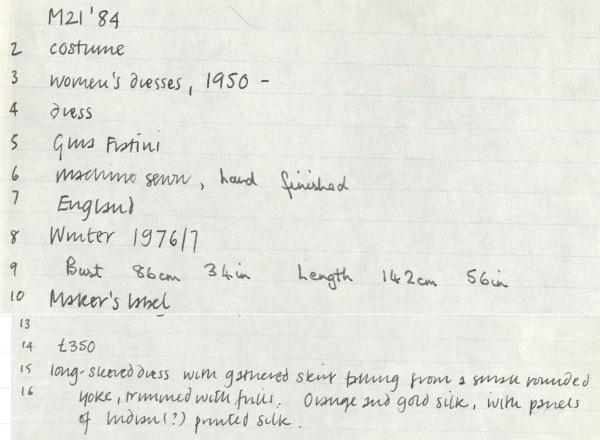 M21'84
2 costume
3 women's dresses, 1950 -
4 dress
5 Gina Fratini
6 machine sewn, hand finished
7 England
8 Winter 1976/7
9 Bust 86cm 34in Length 142cm 56in
10 Maker's label
13
14 £350
15 long-sleeved dress with gathered skirt falling from a small rounded
16 yoke, trimmed with frills. Orange and gold silk, with panels
of Indian(?) printed silk.